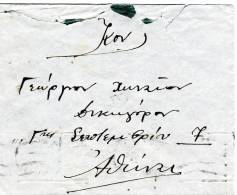 Κον
Γεώργιον
Δικηγόρον
Γης Σεπτεμβρίου 7
Αθήνας